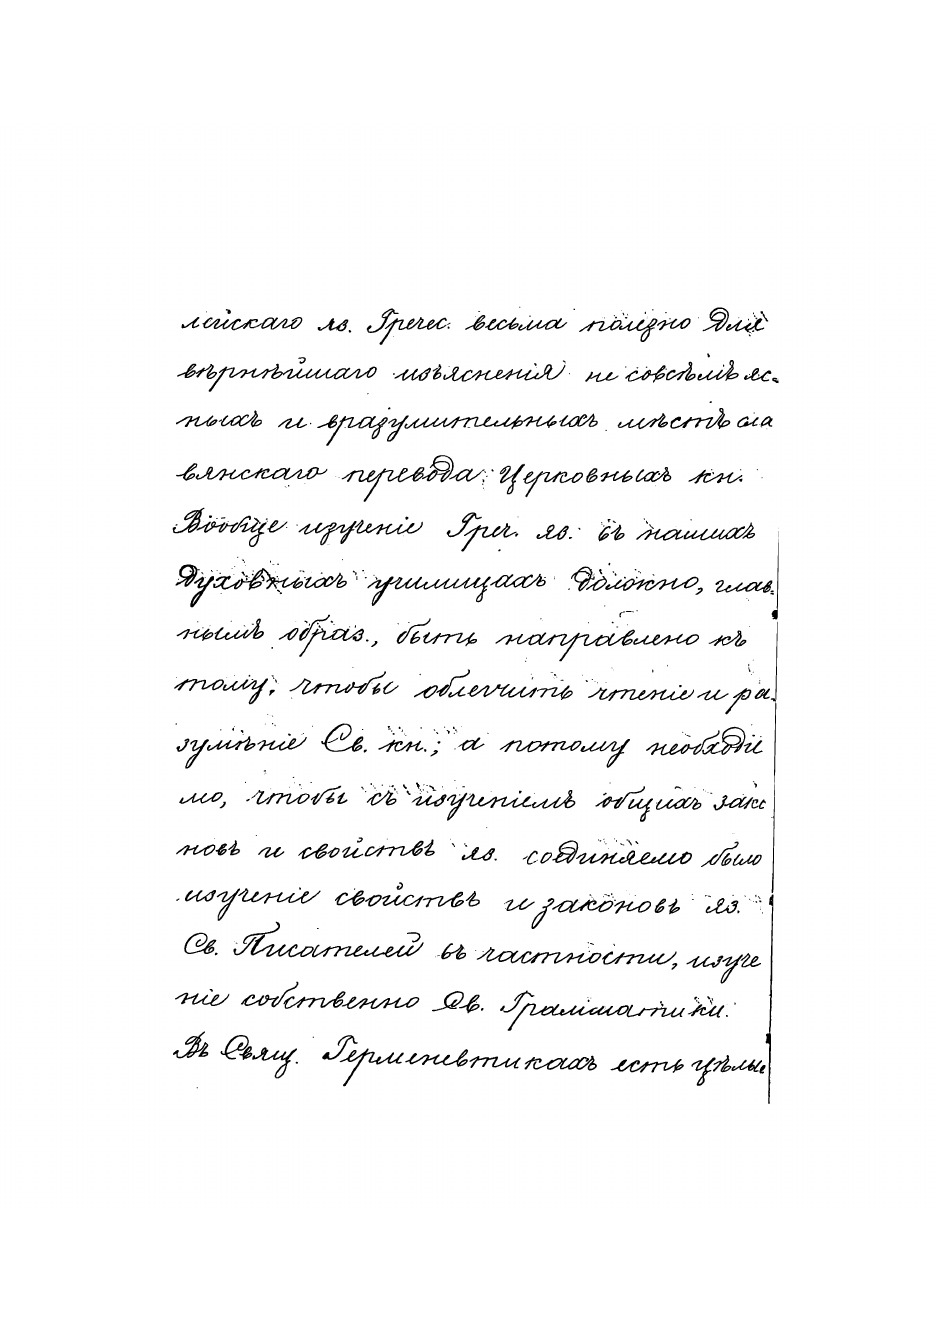 лейскаго яз. Гречес. весьма полезно для
вѣрнѣйшаго изъясненія не совсѣмъ яс-
ныхъ и вразумительныхъ мѣстъ сла
вянскаго перевода Церковныхъ кн.
Вообще изученіе Греч. яз. въ нашихъ
духовныхъ училищахъ должно, глав-
нымъ образ., быть направлено къ
тому, чтобы облегчить чтеніе и ра-
зумѣніе Св. кн.; а потому необходи
мо, чтобы съ изученіемъ общихъ зако
новъ и свойствъ яз. соединяемо было
изученіе свойствъ и законовъ яз.
Св. Писателей въ частности, изуче
ніе собственно Св. Грамматики.
Въ Свящ. Герменевтикахъ есть цѣлые